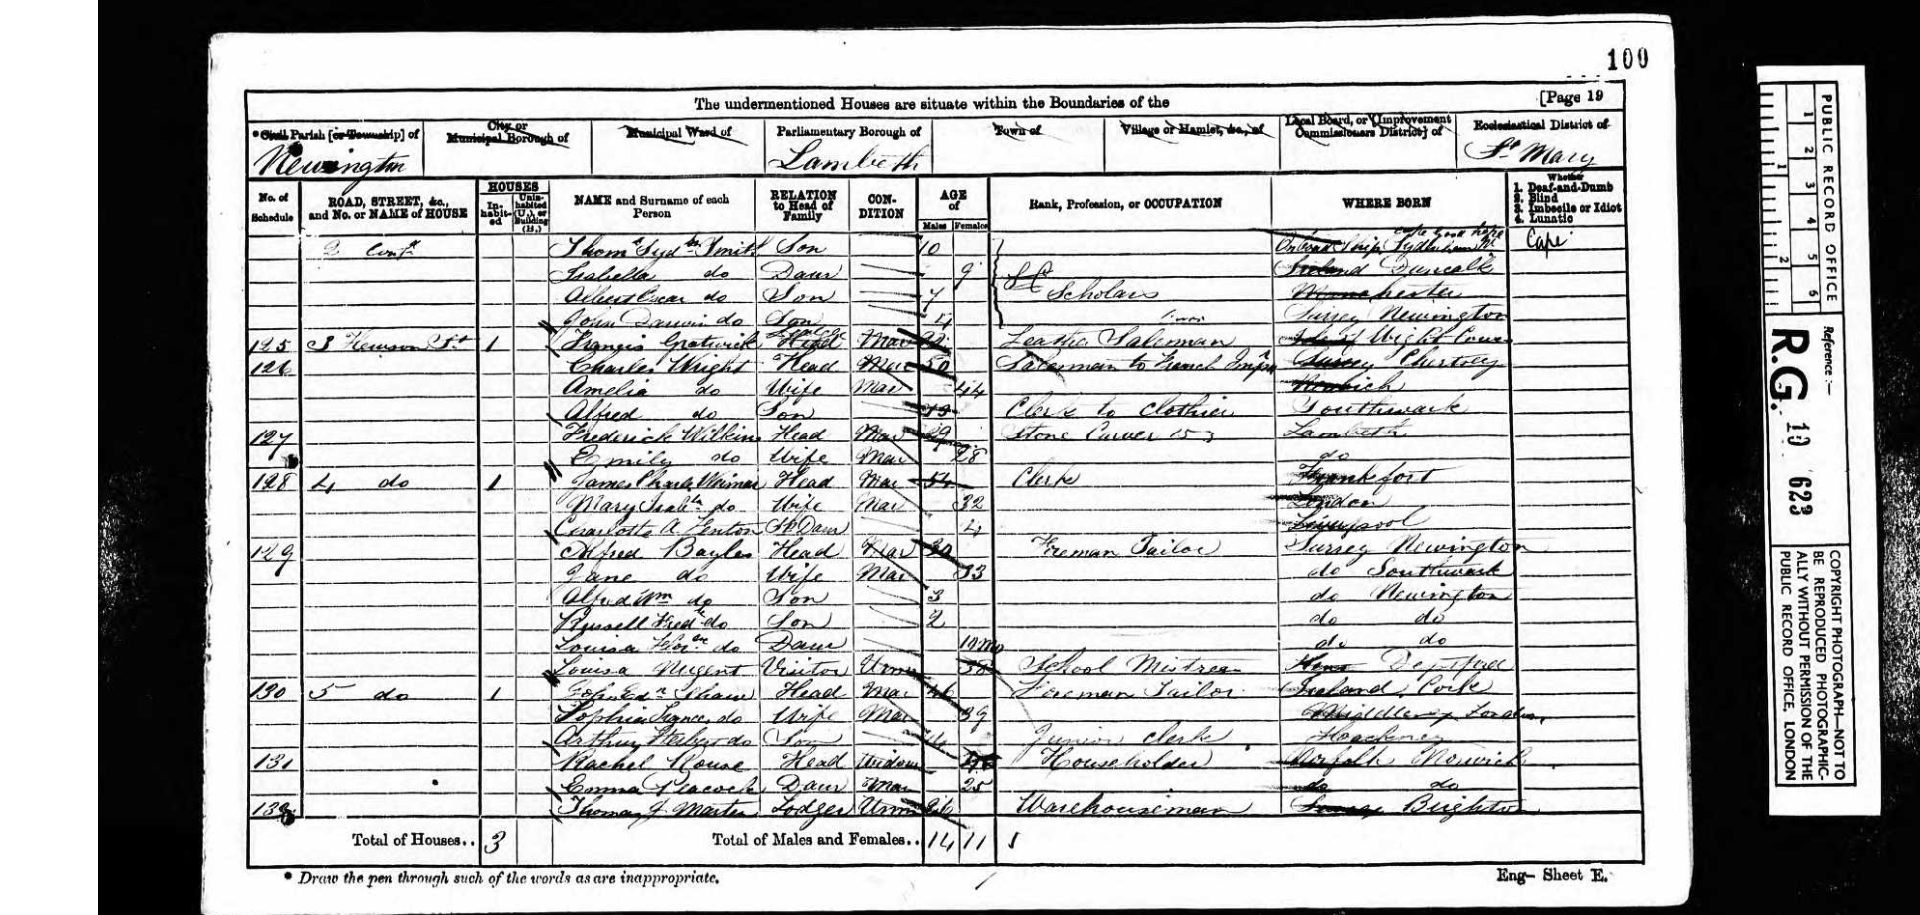 100
The undermentioned Houses are situate within the Boundaries of the [Page 19
*Civil Parish [or Township] of City or Municipal Borough of Municipal Ward of Parliamentary Borough of Town of Village or Hamlet, &c., of Local Board, or [Improvement Commissioners District] of Ecclesiastical District of
Newington Lambeth St Mary
No. of Schedule ROAD, STREET, &c., and No. or NAME of HOUSE HOUSES Inhabited Uninhabited (U.), or Building (B.) NAME and Surname of each Person RELATION to Head of Family CONDITION AGE of Males Females Rank, Profession, or OCCUPATION WHERE BORN Whether 1. Deaf-and-Dumb 2. Blind 3. Imbecile or Idiot 4. Lunatic
2 Smith Son 10 Ship Cape Good Hope Cape
Isabella do Daur 9 Ireland
Albert Oscar do Son 7 Scholars Manchester
John Darwin do Son 4 Surrey Newington
125 3 St 1 Francis Head Mar Leather Salesman Wight
126 Charles Wright Head Mar 50 Salesman to French Surrey Chertsey
Amelia do Wife Mar 44 Norwich
Alfred do Son 19 Clerk to Clothier Southwark
127 Frederick Wilkins Head Mar 29 Stone Carver Lambeth
Emily do Wife Mar 28 do
128 4 do 1 James Charles Head Mar 54 Clerk Frankfort
Mary do Wife Mar 32 London
Charlotte A Fenton Daur 4 Liverpool
129 Alfred Bayles Head Mar 30 Foreman Tailor Surrey Newington
Jane do Wife Mar 33 do Southwark
Alfred Wm do Son 3 do Newington
Russell Fredk do Son 2 do do
Louisa do Daur 10 mo do do
Louisa Nugent Visitor Unm 38 School Mistress Kent Deptford
130 5 do 1 John Head Mar 46 Foreman Tailor Ireland Cork
Sophia do Wife Mar 39 Middlesex London
Arthur do Son Junior Clerk Hackney
131 Rachel Head Widow Householder Norfolk Norwich
Emma Peacock Daur Mar 25 do do
132 Thomas J Lodger Unm Warehouseman Brighton
Total of Houses.. 3 Total of Males and Females.. 14 11
* Draw the pen through such of the words as are inappropriate. Eng- Sheet E.
PUBLIC RECORD OFFICE
1 2 3 4 5 6
1 2
Reference :-
R.G. 10 623
COPYRIGHT PHOTOGRAPH-NOT TO BE REPRODUCED PHOTOGRAPHIC-ALLY WITHOUT PERMISSION OF THE PUBLIC RECORD OFFICE, LONDON